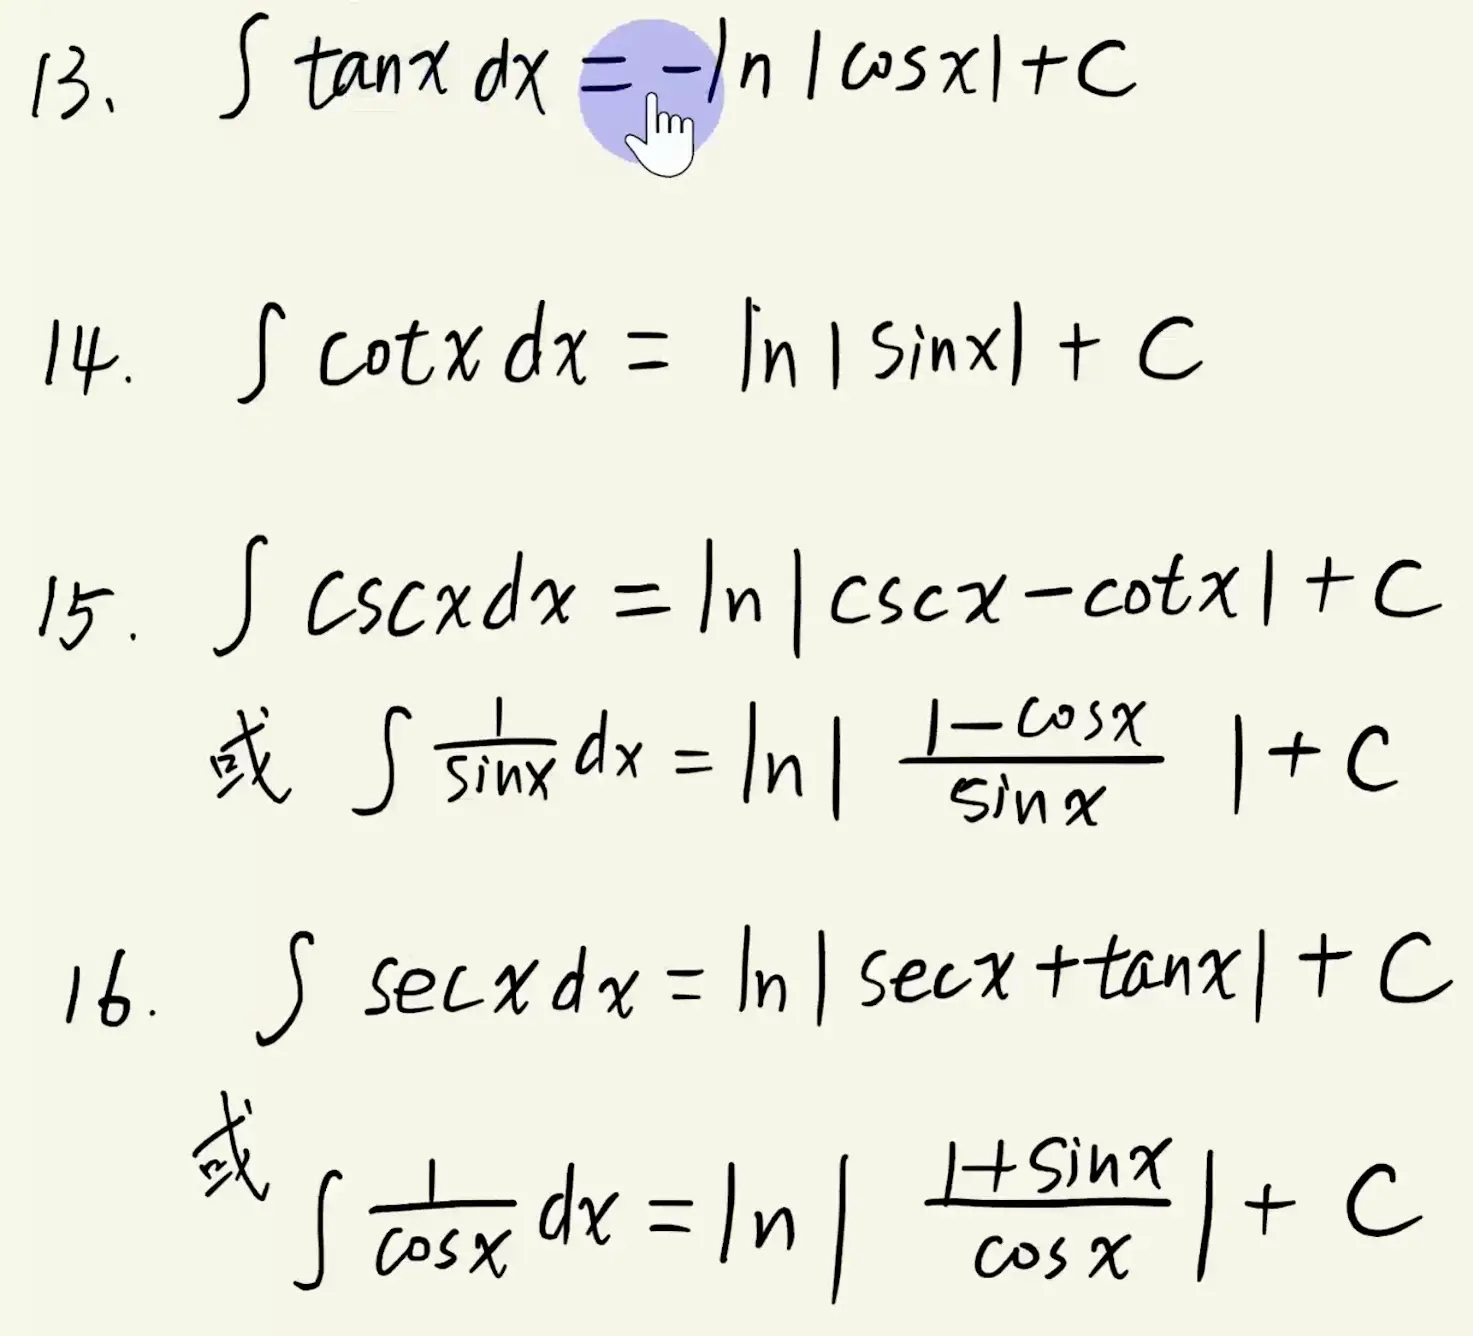 13. ∫ tanx dx = -ln |cosx| + C
14. ∫ cotx dx = ln | sinx| + C
15. ∫ cscx dx = ln | cscx - cotx | + C
或 ∫ \frac{1}{sinx} dx = ln | \frac{1-cosx}{sinx} | + C
16. ∫ secx dx = ln | secx + tanx | + C
或 ∫ \frac{1}{cosx} dx = ln | \frac{1+sinx}{cosx} | + C